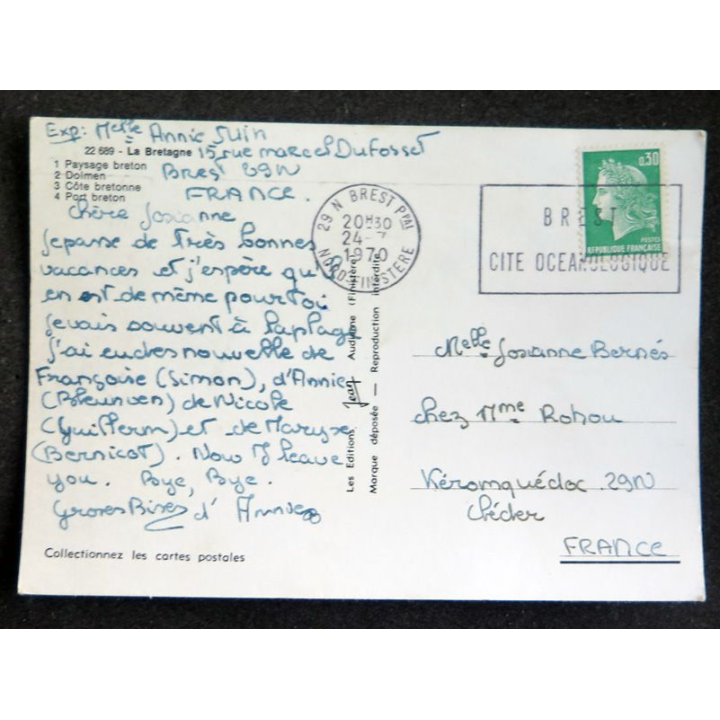 Exp: Melle Annie Juin
22 689 - La Bretagne 15 rue marcel Dufosset
1 Paysage breton
2 Dolmen
3 Côte bretonne
4 Port breton
Brest 29N
FRANCE.
Chère Josianne
Je passe de très bonnes
vacances et j'espère qu'il
en est de même pour toi
je vais souvent à la plage
j'ai eu des nouvelle de
Françoise (Simon), d'Annie
(Bleunven) de Nicole
(Guillerm) et de Maryse
(Bernicot). Now I leave
you. Bye, Bye.
Groses Bises d'Annie
Collectionnez les cartes postales
Les Editions Jean Audierne (Finistère)
Marque déposée — Reproduction interdite
29 N BREST Ppal
20H30
24-7
1970
NORD-FINISTERE
BREST
CITE OCEANOLOGIQUE
0,30
POSTES
REPUBLIQUE FRANCAISE
Melle Josianne Bernés
chez Mme Rohou
Kéromquédoc 29N
Cléder
FRANCE